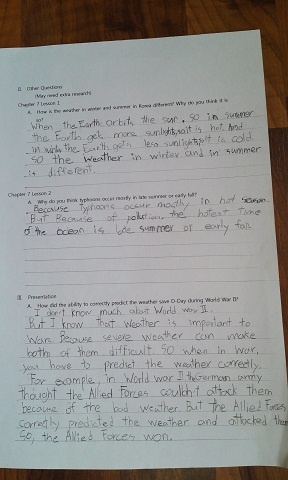 II. Other Questions
(May need extra research)
Chapter 7 Lesson 1
A. How is the weather in winter and summer in Korea different? Why do you think it is
so?
When the Earth orbits the sun. so in summer
the Earth gets more sunlight, so it is hot. And
in winter the Earth gets less sunlight, so it is cold.
so the weather in winter and in summer
is different.
Chapter 7 Lesson 2
A. Why do you think typhoons occur mostly in late summer or early fall?
Because typhoons occur mostly in hot season.
But Because of pollution, the hotest time
of the ocean is late summer or early fall.
III. Presentation
A. How did the ability to correctly predict the weather save D-Day during World War II?
I don't know much about World war II.
But I know that weather is important to
War. Because severe weather can make
both of them difficult. SO when in war,
you have to predict the weather correctly.
For example, in World war II the German army
thought the Allied Forces couldn't attack them
because of the bad weather. But the Allied Forces
correctly predicted the weather and attacked them
So, the Allied Forces won.